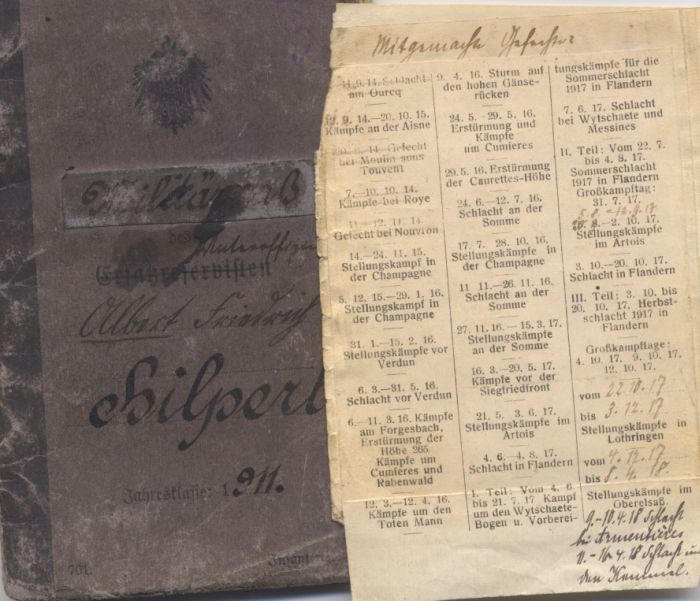 Militärpaß
Unteroffizier
Ersatzreservisten
Albert Friedrich
Hilpert
Jahresklasse: 1911.
701.
Mitgemachte Gefechte:
11. 9. 14. Schlacht
am Ourcq
12. 9. 14.—20. 10. 15.
Kämpfe an der Aisne
9. 14. Gefecht
bei Moulin sous
Touvent
7.—10. 10. 14.
Kämpfe bei Roye
11.—12. 11. 14.
Gefecht bei Nouvron
14.—24. 11. 15.
Stellungskampf in
der Champagne
5. 12. 15.—29. 1. 16.
Stellungskampf in
der Champagne
31. 1.—15. 2. 16.
Stellungskämpfe vor
Verdun
6. 3.—31. 5. 16.
Schlacht vor Verdun
6.—11. 3. 16. Kämpfe
am Forgesbach,
Erstürmung der
Höhe 265
Kämpfe um
Cumieres und
Rabenwald
12. 3.—12. 4. 16.
Kämpfe um den
Toten Mann
9. 4. 16. Sturm auf
den hohen Gänse-
rücken
24. 5. - 29. 5. 16.
Erstürmung und
Kämpfe
um Cumieres
29. 5. 16. Erstürmung
der Caurettes-Höhe
24. 6.—12. 7. 16.
Schlacht an der
Somme
17. 7. 28. 10. 16.
Stellungskämpfe in
der Champagne
11 11.—26. 11. 16.
Schlacht an der
Somme
27. 11. 16.— 15. 3. 17.
Stellungskämpfe
an der Somme
16. 3.—20. 5. 17.
Kämpfe vor der
Siegfriedfront
21. 5. 3. 6. 17.
Stellungskämpfe im
Artois
4. 6.—4. 8. 17.
Schlacht in Flandern
I. Teil: Vom 4. 6
bis 21. 7. 17 Kampf
um den Wytschaete-
Bogen u. Vorberei-
tungskämpfe für die
Sommerschlacht
1917 in Flandern
7. 6. 17. Schlacht
bei Wytschaete und
Messines
II. Teil: Vom 22. 7.
bis 4. 8. 17.
Sommerschlacht
1917 in Flandern
Großkampftag:
31. 7. 17.
5. 8. -12.9.17
—2. 10. 17.
Stellungskämpfe im
Artois
3. 10.—20. 10. 17.
Schlacht in Flandern
III. Teil: 3. 10. bis
20. 10. 17. Herbst-
schlacht 1917 in
Flandern
Großkampftage:
4. 10. 17. 9. 10. 17.
12. 10. 17.
vom 22.10.17
bis 3.12.17
Stellungskämpfe in
Lothringen
vom 4.12.17
bis 8. 4. 18.
Stellungskämpfe im
Oberelsaß.
9.-10.4.18 Schlacht
bei Armentières
11.-16.4.18 Schlacht um
den Kemmel.